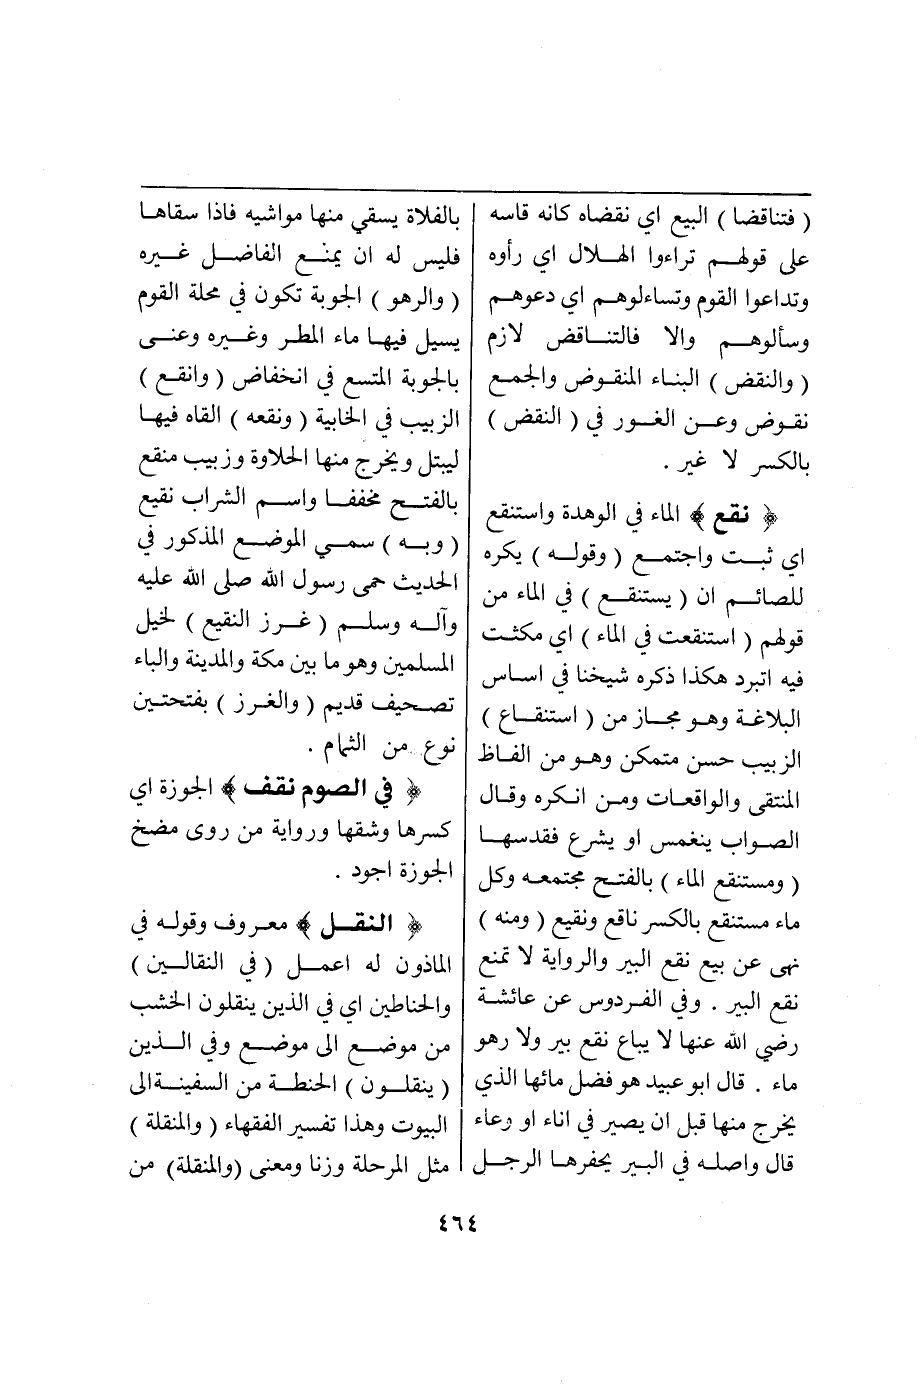 ( فتناقضا ) البيع اي نقضاه كانه قاسه
على قولهم تراءوا الهلال اي رأوه
وتداعوا القوم وتساءلوهم اي دعوهم
وسألوهم والا فالتناقض لازم
( والنقض ) البناء المنقوض والجمع
نقوض وعن الغور في ( النقض )
بالكسر لا غير .
﴿ نقع ﴾ الماء في الوهدة واستنقع
اي ثبت واجتمع ( وقوله ) يكره
للصائم ان ( يستنقع ) في الماء من
قولهم ( استنقعت في الماء ) اي مكثت
فيه اتبرد هكذا ذكره شيخنا في اساس
البلاغة وهو مجاز من ( استنقاع )
الزبيب حسن متمكن وهو من الفاظ
المنتقى والواقعات ومن انكره وقال
الصواب ينغمس او يشرع فقد سها
( ومستنقع الماء ) بالفتح مجتمعه وكل
ماء مستنقع بالكسر ناقع ونقيع ( ومنه )
نهى عن بيع نقع البير والرواية لا تمنع
نقع البير . وفي الفردوس عن عائشة
رضي الله عنها لا يباع نقع بير ولا رهو
ماء . قال ابو عبيد هو فضل مائها الذي
يخرج منها قبل ان يصير في اناء او وعاء
قال واصله في البير يحفرها الرجل
بالفلاة يسقي منها مواشيه فاذا سقاها
فليس له ان يمنع الفاضل غيره
( والرهو ) الجوبة تكون في محلة القوم
يسيل فيها ماء المطر وغيره وعنى
بالجوبة المتسع في انخفاض ( وانقع )
الزبيب في الخابية ( ونقعه ) القاه فيها
ليبتل ويخرج منها الحلاوة وزبيب منقع
بالفتح مخففا واسم الشراب نقيع
( وبه ) سمي الموضع المذكور في
الحديث حمى رسول الله صلى الله عليه
وآله وسلم ( غرز النقيع ) لخيل
المسلمين وهو ما بين مكة والمدينة والباء
تصحيف قديم ( والغرز ) بفتحتين
نوع من الثمام .
﴿ في الصوم نقف ﴾ الجوزة اي
كسرها وشقها ورواية من روى مضخ
الجوزة اجود .
﴿ النقل ﴾ معروف وقوله في
الماذون له اعمل ( في النقالين )
والحناطين اي في الذين ينقلون الخشب
من موضع الى موضع وفي الذين
( ينقلون ) الحنطة من السفينة الى
البيوت وهذا تفسير الفقهاء ( والمنقلة )
مثل المرحلة وزنا ومعنى (والمنقلة) من
٤٦٤